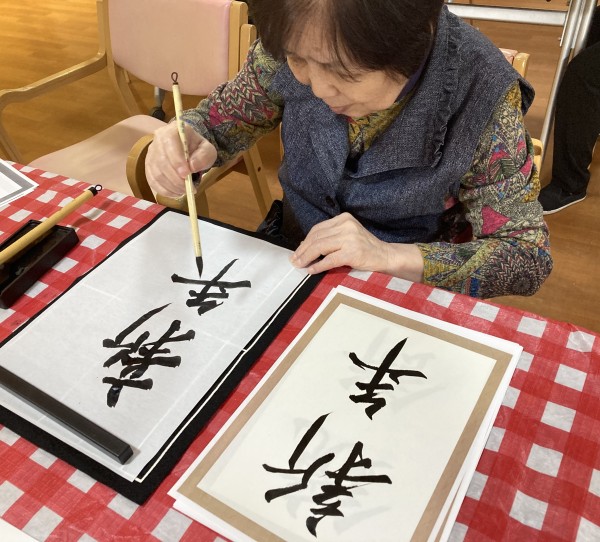 新年
新年